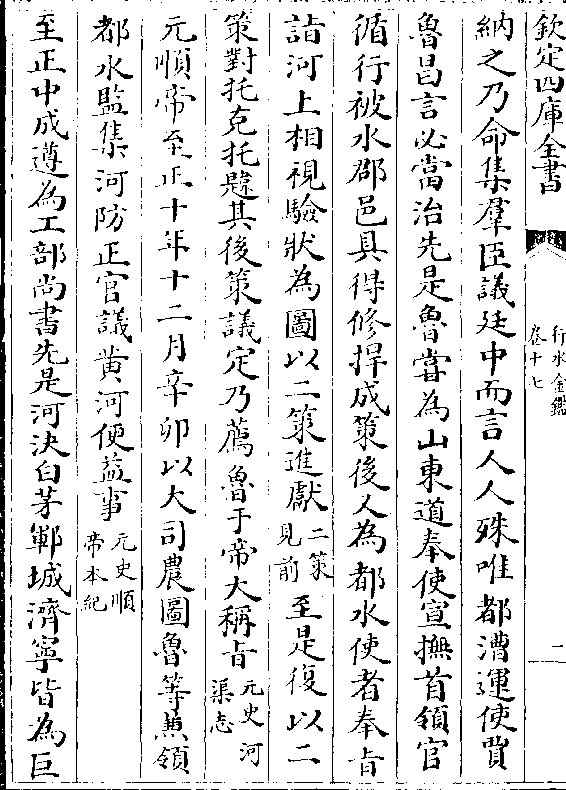 欽定四庫全書
行水金鑑
卷十七
二
納之乃命集羣臣議廷中而言人人殊唯都漕運使賈
魯昌言必當治先是魯嘗為山東道奉使宣撫首領官
循行被水郡邑具得修捍成策後又為都水使者奉旨
詣河上相視驗狀為圖以二策進獻二策見前至是復以二
策對托克托韙其後策議定乃薦魯于帝大稱旨元史河渠志
元順帝至正十年十二月辛卯以大司農圖魯等兼領
都水監集河防正官議黄河便益事元史順帝本紀
至正中成遵為工部尚書先是河決白茅鄆城濟寧皆為巨